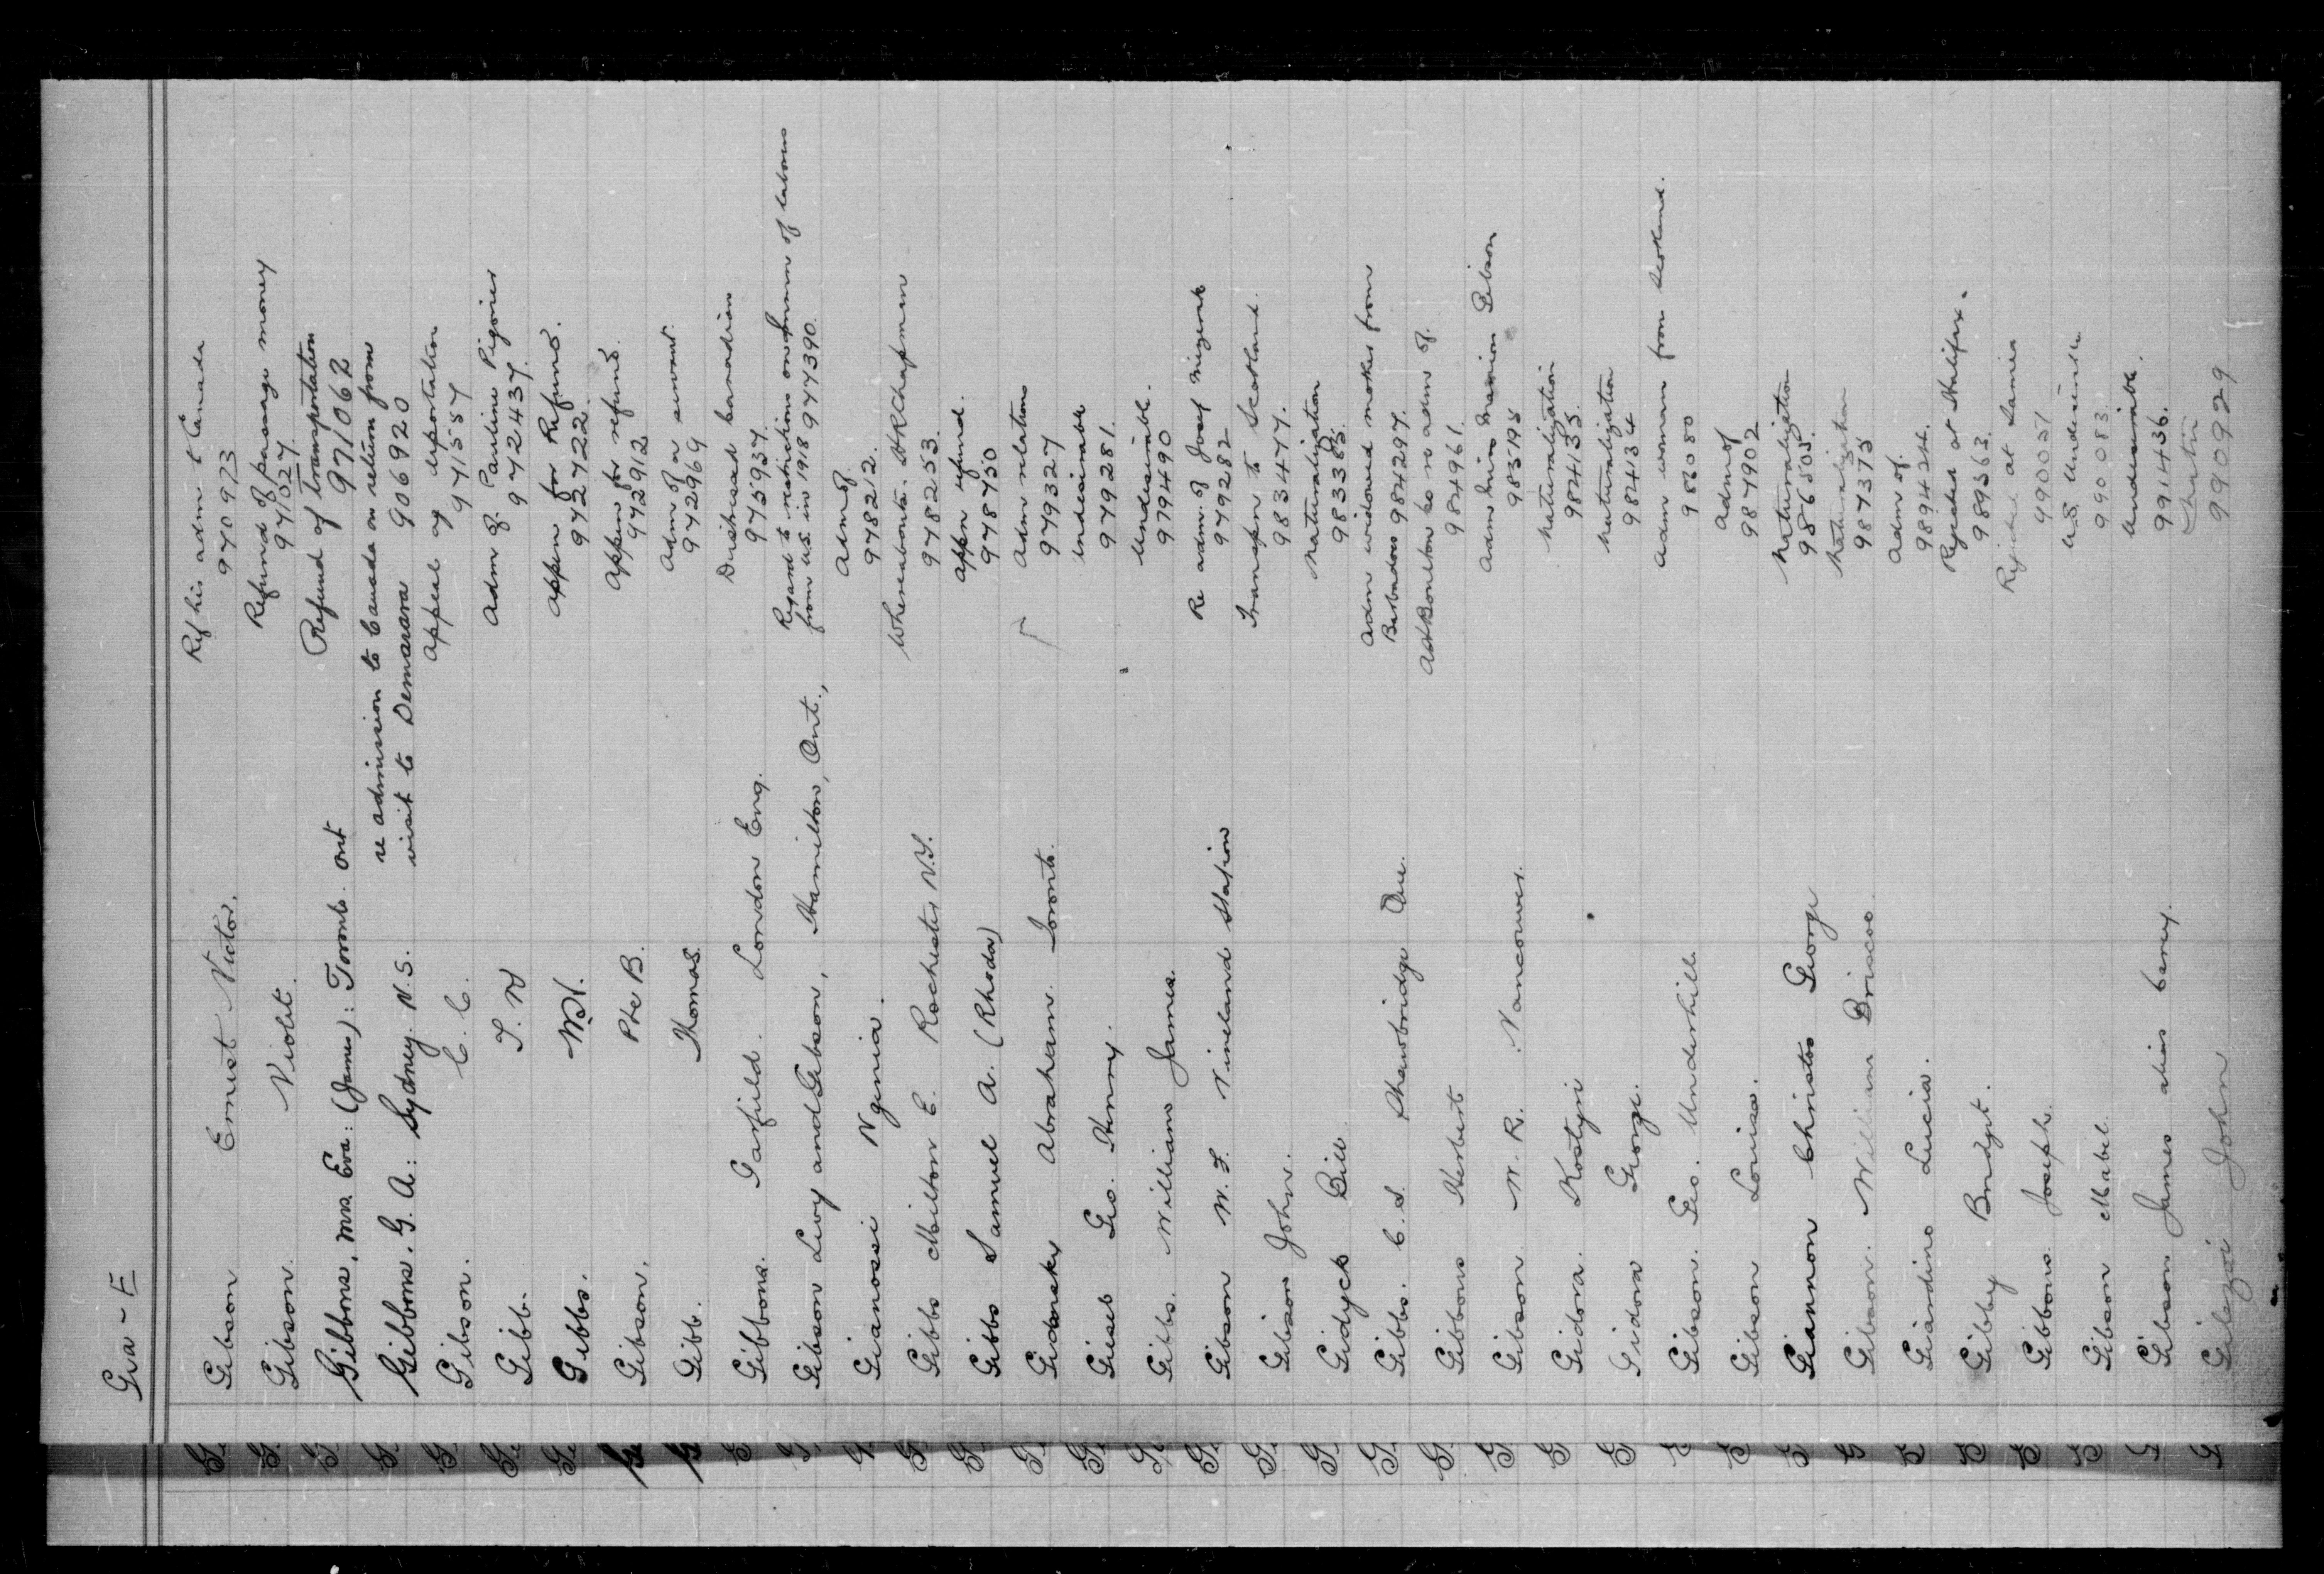 Gia - E
Gibson Ernest Victor. Ref his adm t Canada
970973
Gibson. Violet. Refund of passage money
971027.
Gibbons, Mrs. Eva: (James): Toronto. Ont Refund of Transportation
971062
Gibbons. G. A: Sydney. N.S. re admission to Canada on return from
visit to Demarara 906920
Gibson. C. C. appeal ag deportation
971557
Gibb. Adm of Pauline Pigories
972437.
Gibbs. appln for Refund.
972722.
Gibson. Pte B. appln for refund.
972912
Gibb. Thomas. Adm of a servant.
972969
Gibbons. Garfield. London Eng. Distressed Canadian
975937.
Gibson Levy and Gibson, Hamilton, Ont., Regard to restrictions on of labour
from U.S. in 1918 977390.
Gianossi Ngenia. Adm of
978212.
Gibbs Milton E. Rochester N.Y. Whereabouts. H R Chapman
978253.
Gibbs Samuel A. (Rhoda) appln refund.
978750
Gidorsky Abraham. Toronto. Adm relations
979327
Gieseb Geo. Henry. Undesirable
979281.
Gibbs. William James. Undesirable.
979490
Gibson W. F. Vineland Station Re adm. of Josef
979282
Gibson John. Transpn to Scotland.
983477.
Gidyck Bill Naturalization
983385.
Gibbs. C. S. Shawbridge Que. Adm widowed mother from
Barbadoes 984297.
Gibbons Herbert adm of.
984961.
Gibson W. R. Vancouver. Adm Miss Marion Gibson
985195
Gidora. Kostyn Naturalization
984135.
Gidora George. Naturalization
984134
Gibson. Geo. Underhill. Adm woman from Scotland.
986080
Gibson Louisa. Adm of
987902
Giannon Christos George Naturalization
986505.
Gibson. William Briscoe. Naturalization
987375
Giardino Lucia. Adm of.
989424.
Gibby Bridget. Rejected at Halifax.
989563.
Gibbons. Joseph. Rejected at Sarnia
990051
Gibson Mabel. U.S. Undesirable
990083.
Gibson James alias Carey. Undesirable.
991436.
John
990929